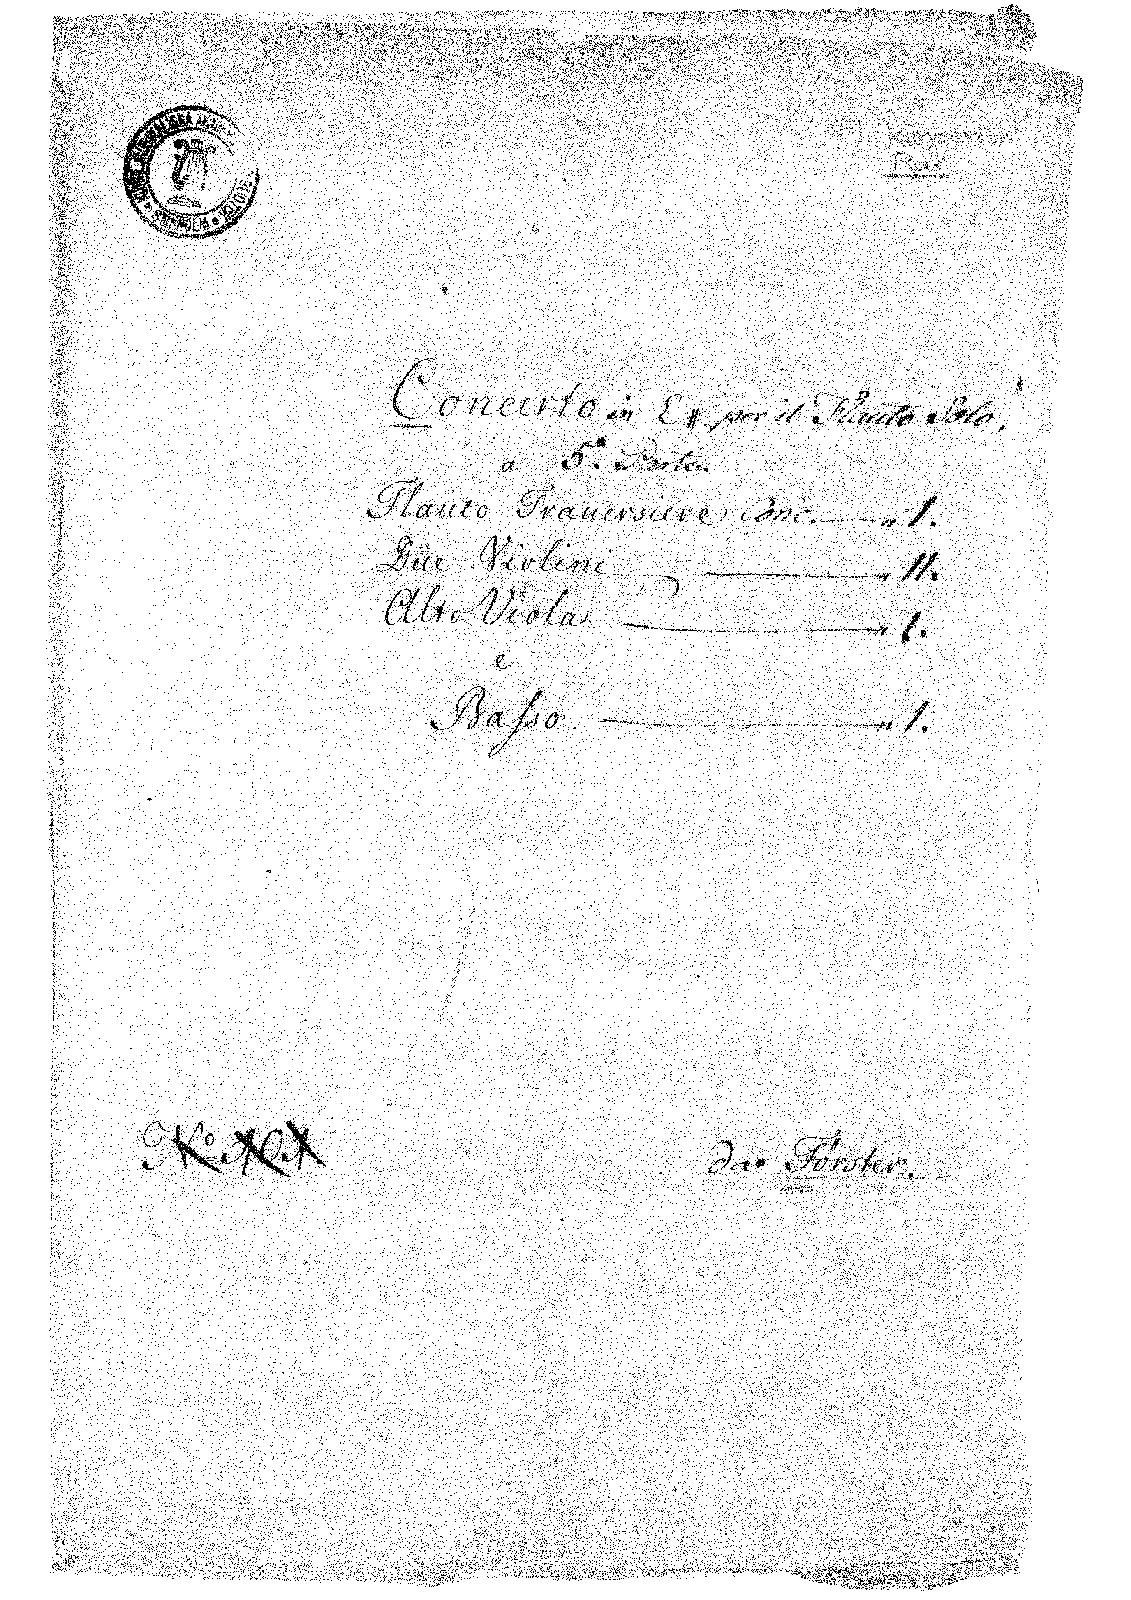 Concerto in E# per il Flauto Solo.
a 5. Parte.
Flauto Traversiere Conc. „ I.
Due Violini „ II.
Alto Viola „ I.
e
Basso „ I.
No.
da Förster.